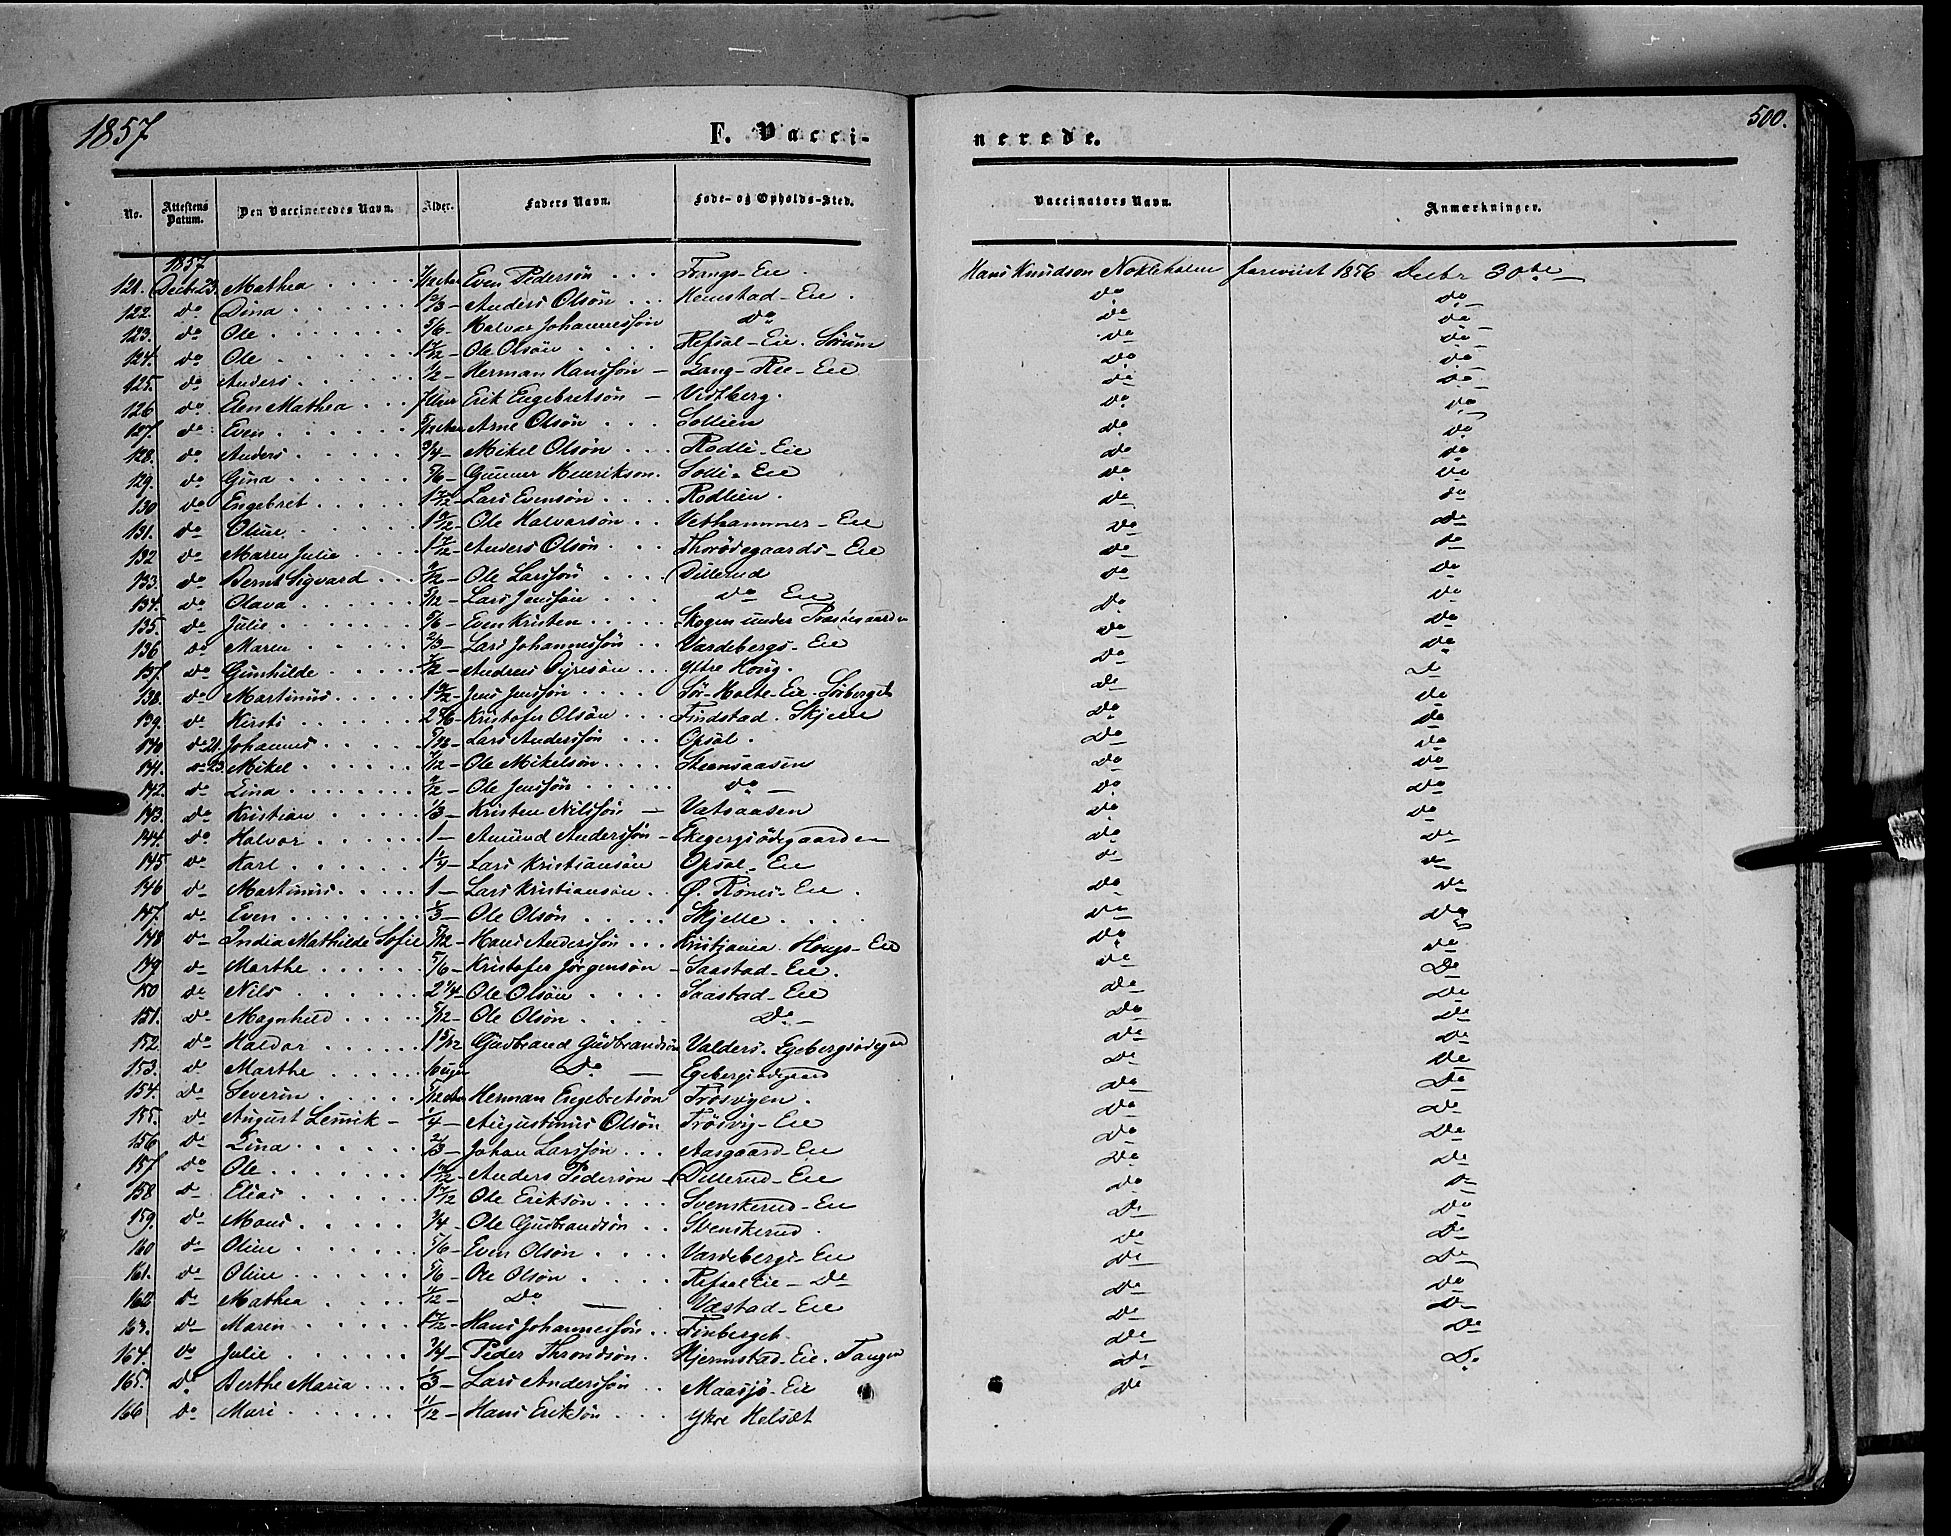 1857
F. Vacci-
nerede.
500.
No. Attestens Datum. Den Vaccineredes Navn. Alder. Faders Navn. Føde- og Opholds-Sted. Vaccinators Navn. Anmærkninger.
1857
121. Decbr 23. Mathea Even Pedersøn Eie Hans Knudson forevist 1856 Decbr 30te
122. do Dina 2/3 Anders Olsøn Hemstad-Eie do do
123. do Ole 5/6 Halvor Johannessøn do do do
124. do Ole Ole Olsøn Refsal-Eie. Sørum do do
125. do Anders 1/2 Herman Hanssøn Eie do do
126 do Elen Mathea Erik Engebretsøn Vidtberg. do do
127. do Even Arne Olsøn Sollien do do
128. do Anders 3/4 Mikel Olsøn Rodli-Eie do do
129. do Gina 5/6 Gunner Henrikson Solli-Eie do do
130 do Engebret Lars Evensøn Rodlien. do do
131. do Oline Ole Halvorsøn Vethammer-Eie do do
132 do Maren Julie Anders Olsøn Thorødegaards-Eie do do
133. do Bernt Sigvard Ole Larssøn Dillerud do do
134. do Olava 5/12 Lars Jenssøn do Eie do do
135. do Julie 5/6 Even Kristen Skogen under Præstegaarden do do
136 do Maren 2/3 Lars Johannessøn Vardebergs-Eie do do
137. do Gunhilde Andreas Syresøn Ytre Houg. do do
138. do Martinus Jens Jenssøn Eie do do
139. do Kersti Kristofer Olsøn Findstad. Skjelle do do
140 do 21. Johannes Lars Anderssøn Opsal. do do
141. do 23. Mikel Ole Mikelsøn Steensaasen do do
142. do Lina Ole Jenssøn do do do
143. do Kristian 1/3 Kristen Nilssøn Vatsaasen do do
144. do Halvor 1 Amund Anderssøn Egebergsødegaarden do do
145 do Karl Lars Kristiansøn Opsal-Eie do do
146 do Martinus 1 Lars Kristiansøn Ø. Rønes-Eie do do
147. do Even 1/3 Ole Olsøn Skjelle do do
148 do India Mathilde Sofie Hans Anderssøn Kristiania. Hougs-Eie do do
149 do Marthe 5/6 Kristofer Jørgensøn Saastad-Eie. do do
150 do Nils 2 1/4 Ole Olsøn Saastad-Eie do do
151. do Magnhild Ole Olsøn Do do do
152. do Haldor Gudbrand Gudbrandsøn Valders. do do
153. do Marthe 6 uger Do Egebergsødegaard do do
154. do Severin Herman Engebretsøn Trøsvigen. do do
155. do August 1/4 Augustinus Olsøn Trøsvig-Eie do do
156 do Lina 2/3 Johan Larssøn Aasgaard-Eie do do
157 do Ole Anders Pedersøn Dillerud-Eie do do
158 do Elias Ole Eriksøn Svenskerud-Eie do do
159. do Mons 3/4 Ole Gudbrandsøn Svenskerud. do do
160 do Oline 5/6 Even Olsøn Vardebergs-Eie do do
161. do Oline 5/6 Ole Olsøn Refsal Eie - Do do do
162 do Mathea Do Væstad-Eie do do
163. do Maren Hans Johannessøn Finberget do do
164. do Julie 3/4 Peder Throndsøn Hjermstad-Eie. Tangen do do
165. do Berthe Maria 1/3 Lars Anderssøn Maasjø-Eie do do
166 do Mari Hans Eriksøn Ytre Helsæt do